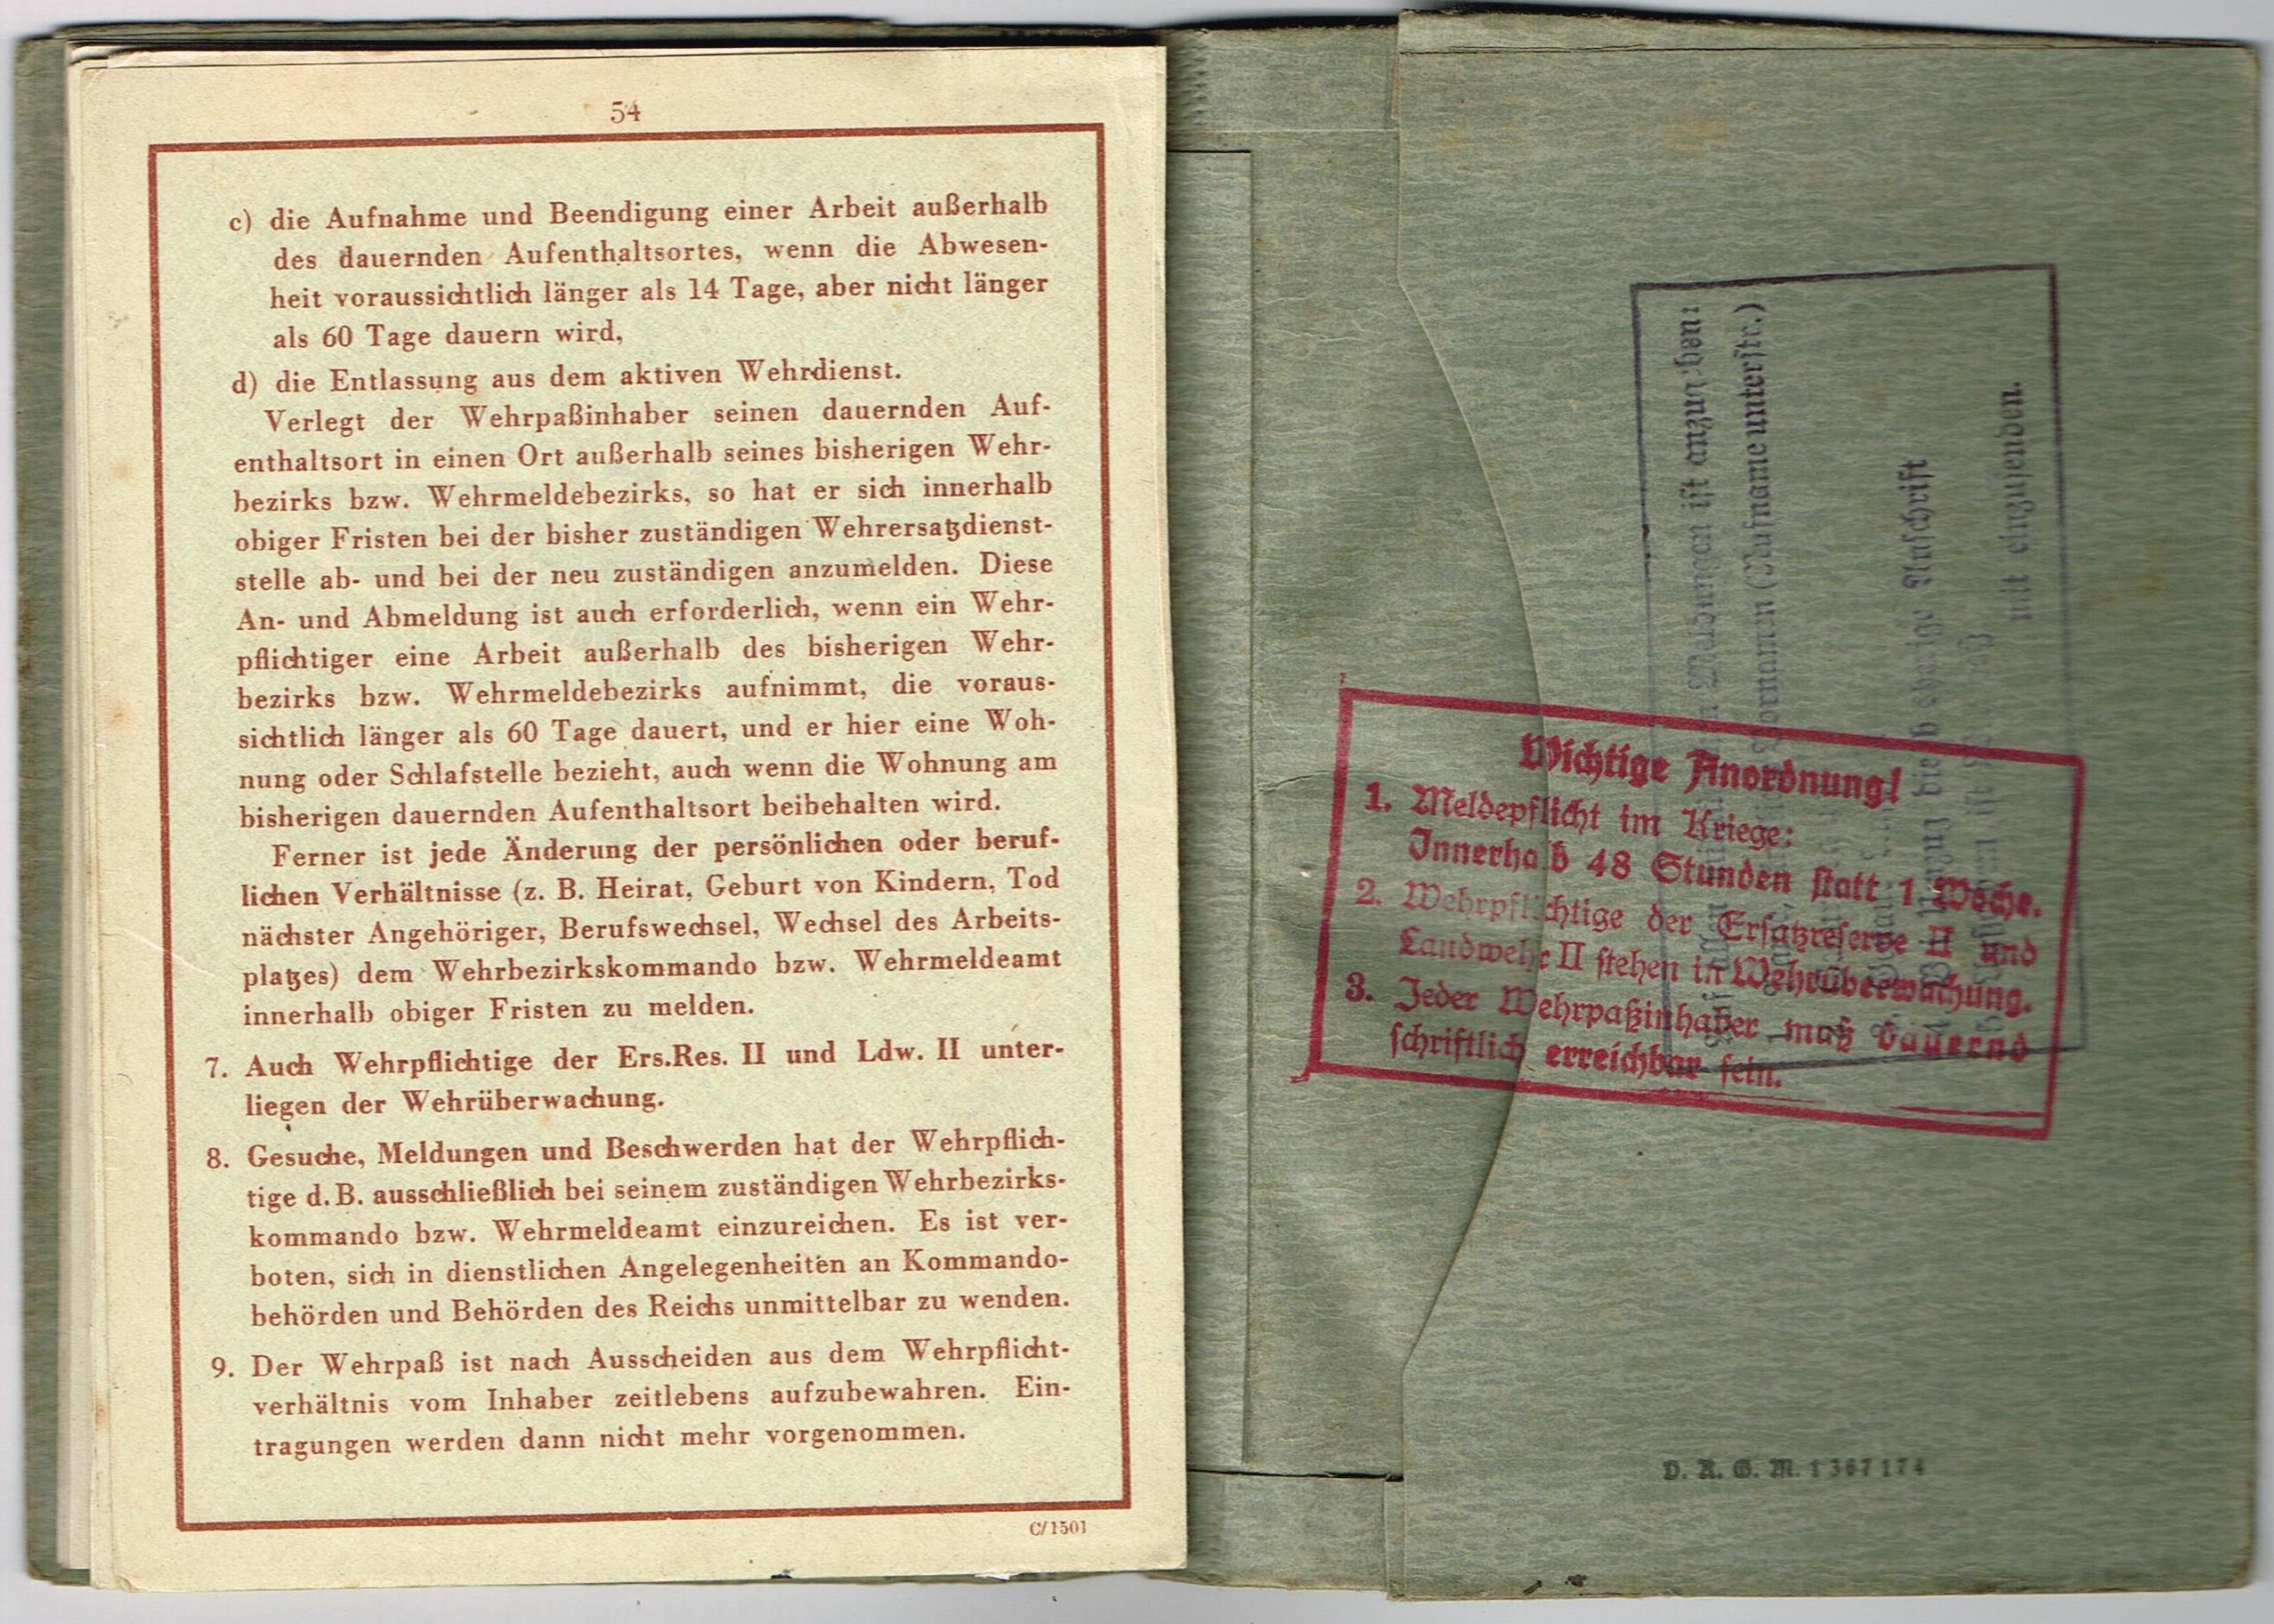 54
c) die Aufnahme und Beendigung einer Arbeit außerhalb
des dauernden Aufenthaltsortes, wenn die Abwesen-
heit voraussichtlich länger als 14 Tage, aber nicht länger
als 60 Tage dauern wird,
d) die Entlassung aus dem aktiven Wehrdienst.
Verlegt der Wehrpaßinhaber seinen dauernden Auf-
enthaltsort in einen Ort außerhalb seines bisherigen Wehr-
bezirks bzw. Wehrmeldebezirks, so hat er sich innerhalb
obiger Fristen bei der bisher zuständigen Wehrersatzdienst-
stelle ab- und bei der neu zuständigen anzumelden. Diese
An- und Abmeldung ist auch erforderlich, wenn ein Wehr-
pflichtiger eine Arbeit außerhalb des bisherigen Wehr-
bezirks bzw. Wehrmeldebezirks aufnimmt, die voraus-
sichtlich länger als 60 Tage dauert, und er hier eine Woh-
nung oder Schlafstelle bezieht, auch wenn die Wohnung am
bisherigen dauernden Aufenthaltsort beibehalten wird.
Ferner ist jede Änderung der persönlichen oder beruf-
lichen Verhältnisse (z. B. Heirat, Geburt von Kindern, Tod
nächster Angehöriger, Berufswechsel, Wechsel des Arbeits-
platzes) dem Wehrbezirkskommando bzw. Wehrmeldeamt
innerhalb obiger Fristen zu melden.
7. Auch Wehrpflichtige der Ers.Res. II und Ldw. II unter-
liegen der Wehrüberwachung.
8. Gesuche, Meldungen und Beschwerden hat der Wehrpflich-
tige d. B. ausschließlich bei seinem zuständigen Wehrbezirks-
kommando bzw. Wehrmeldeamt einzureichen. Es ist ver-
boten, sich in dienstlichen Angelegenheiten an Kommando-
behörden und Behörden des Reichs unmittelbar zu wenden.
9. Der Wehrpaß ist nach Ausscheiden aus dem Wehrpflicht-
verhältnis vom Inhaber zeitlebens aufzubewahren. Ein-
tragungen werden dann nicht mehr vorgenommen.
C/1501
Meldungen ist anzugeben:
Vornamen (Rufname unterstr.)
die bisherige Anschrift
mit einzusenden.
Wichtige Anordnung!
1. Meldepflicht im Kriege:
Innerhalb 48 Stunden statt 1 Woche.
2. Wehrpflichtige der Ersatzreserve II und
Landwehr II stehen in Wehrüberwachung.
3. Jeder Wehrpaßinhaber muß dauernd
schriftlich erreichbar sein.
D. R. G. M. 1367174